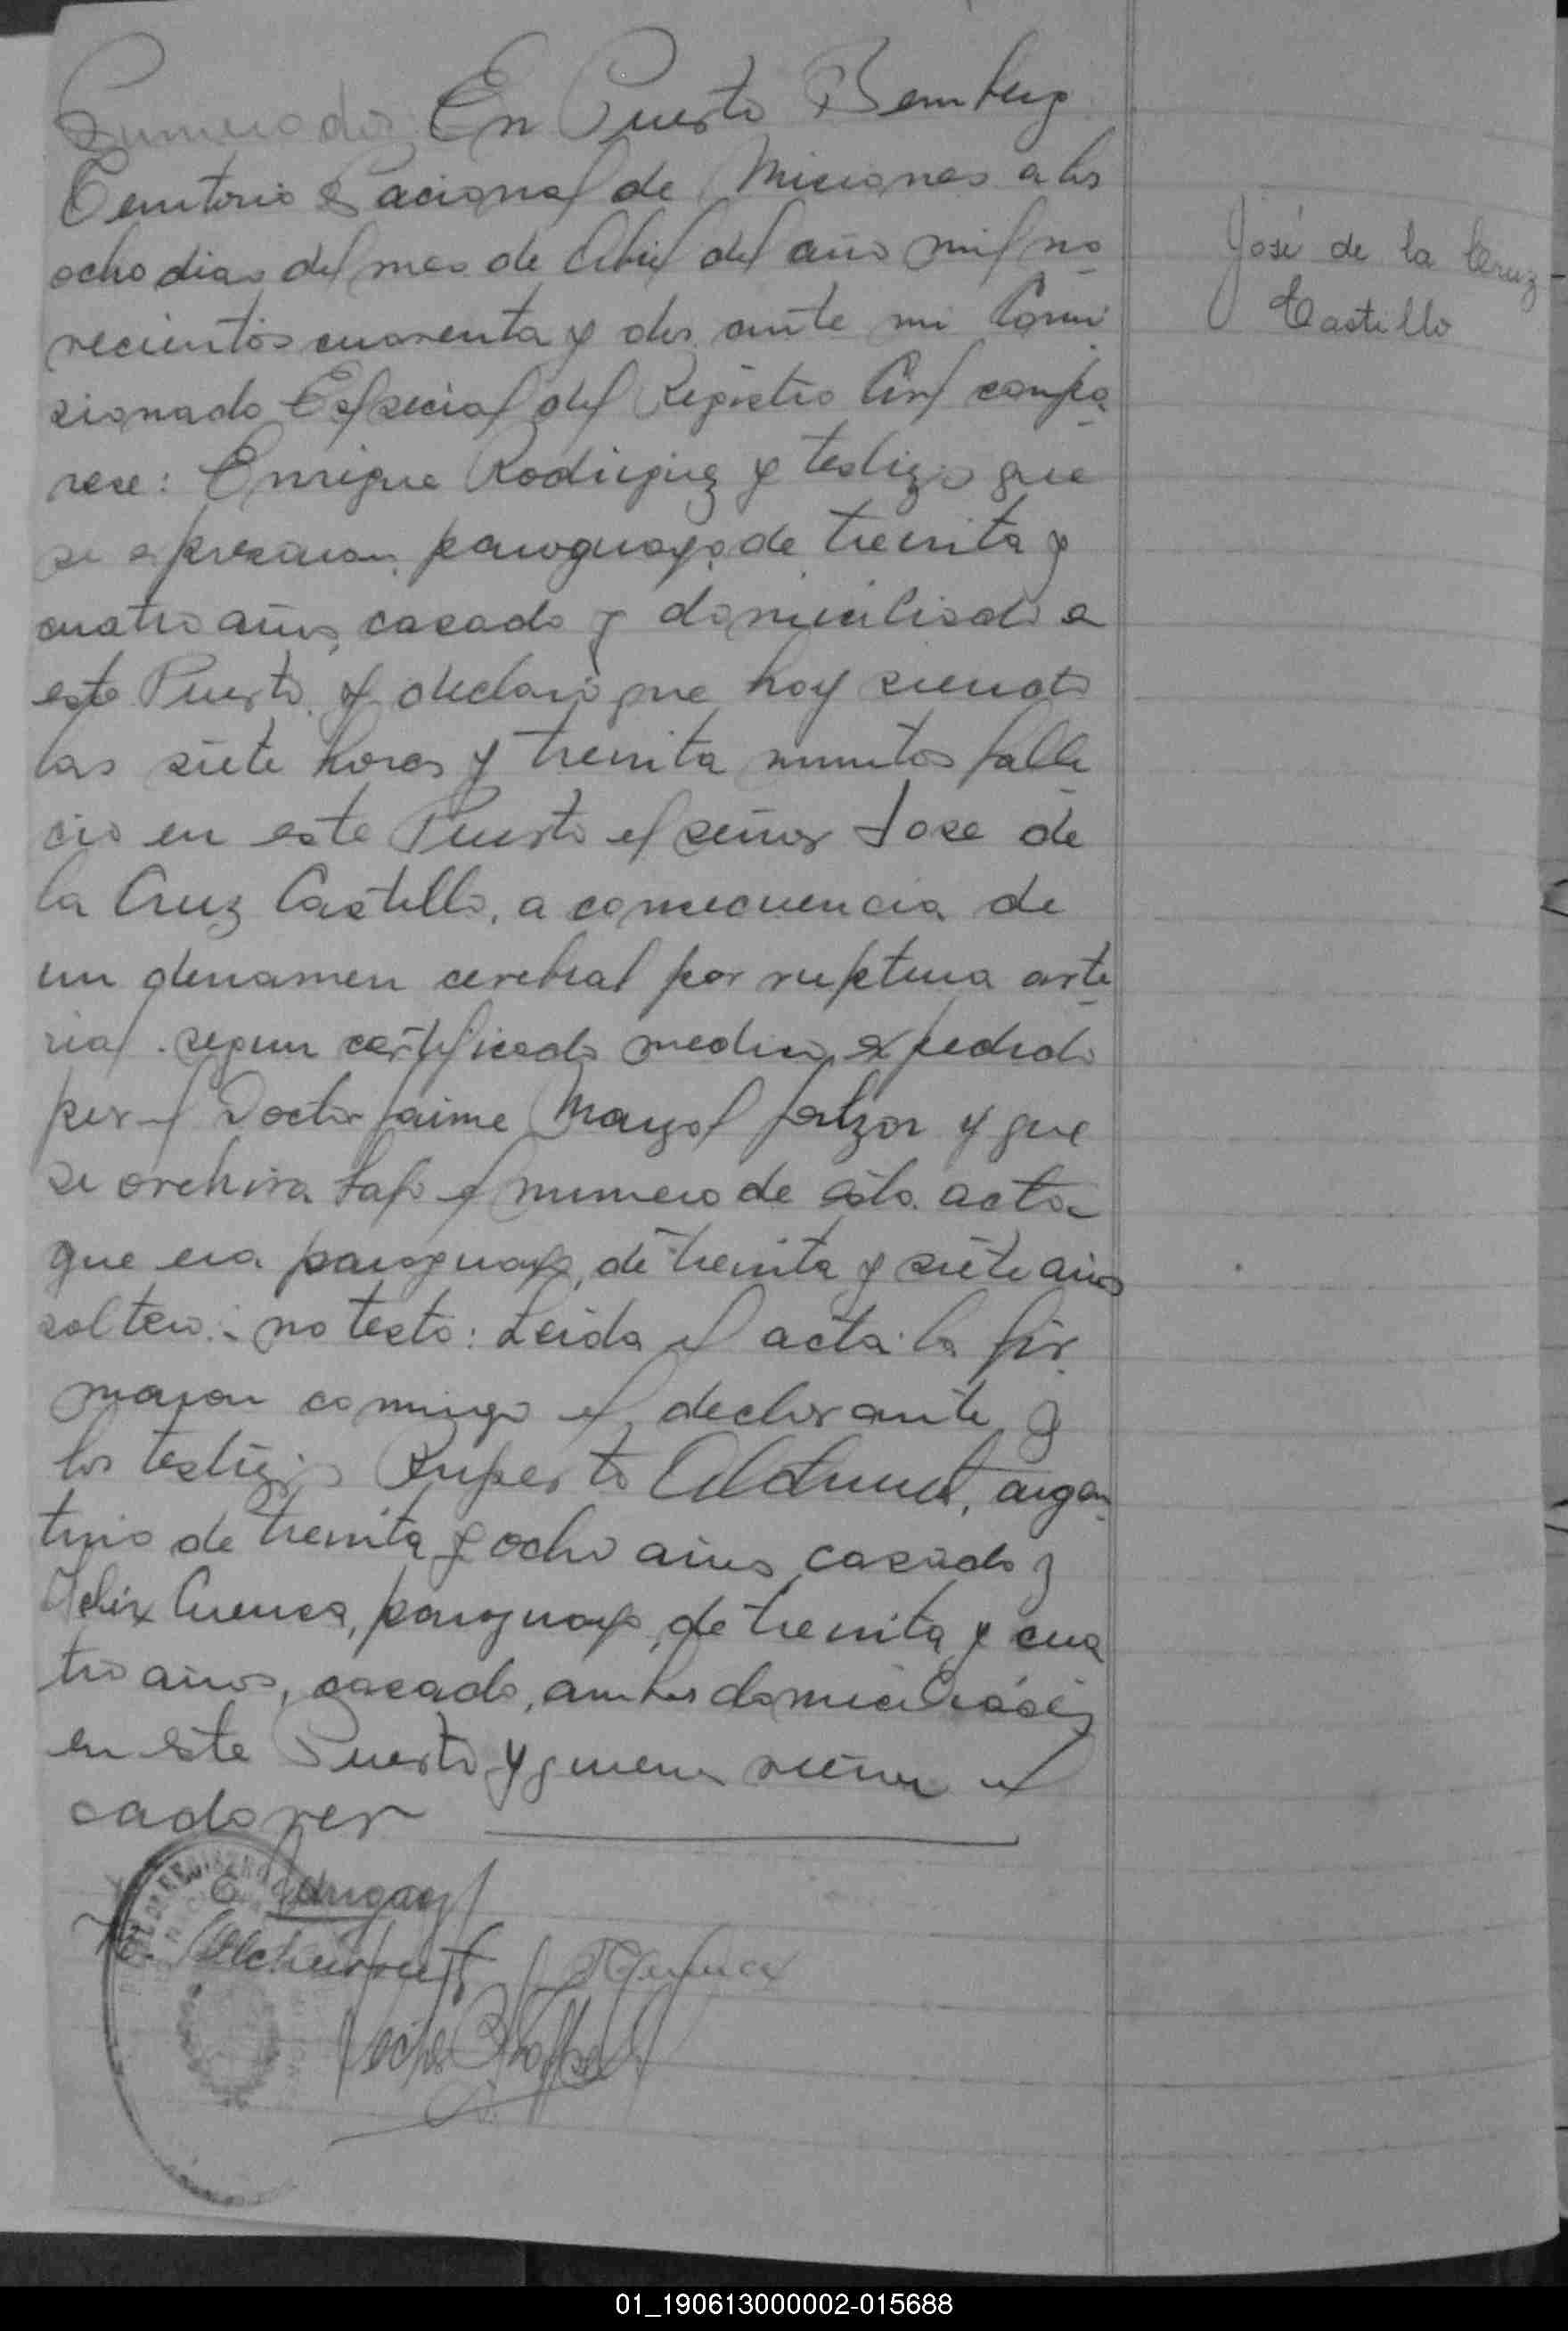 Numero dos En Puerto Bemberg
Territorio Nacional de Miciones a los
ocho dias del mes de Abril del año mil no
vecientos cuarenta y dos, ante mi Comi
sionado Especial del Registro Civil compa
rese: Enrique Rodriguez y testigos que
se expresaran, paraguayo, de treinta y
cuatro años, casado y domiciliado a
este Puerto, y declaró que hoy siendo
las siete horas y treinta minutos falle
cio en este Puerto el señor Jose de
la Cruz Castillo, a consecuencia de
un derramen cerebral por ruptura arte
rial. segun certificado medico expedido
por el Doctor Jaime y que
se archiva bajo el numero de esta acta
que era paraguayo, de treinta y siete años
soltero. no testo: Leida el acta la fir
maron conmigo el declarante y
los testigos Ruperto argen
tino de treinta y ocho años, casado y
Felix Cuenca, paraguayo, de treinta y cua
tro años, casado, ambos domiciliados
en este Puerto y quienes vieron el
cadaver
José de la Cruz
Castillo
01_190613000002-015688